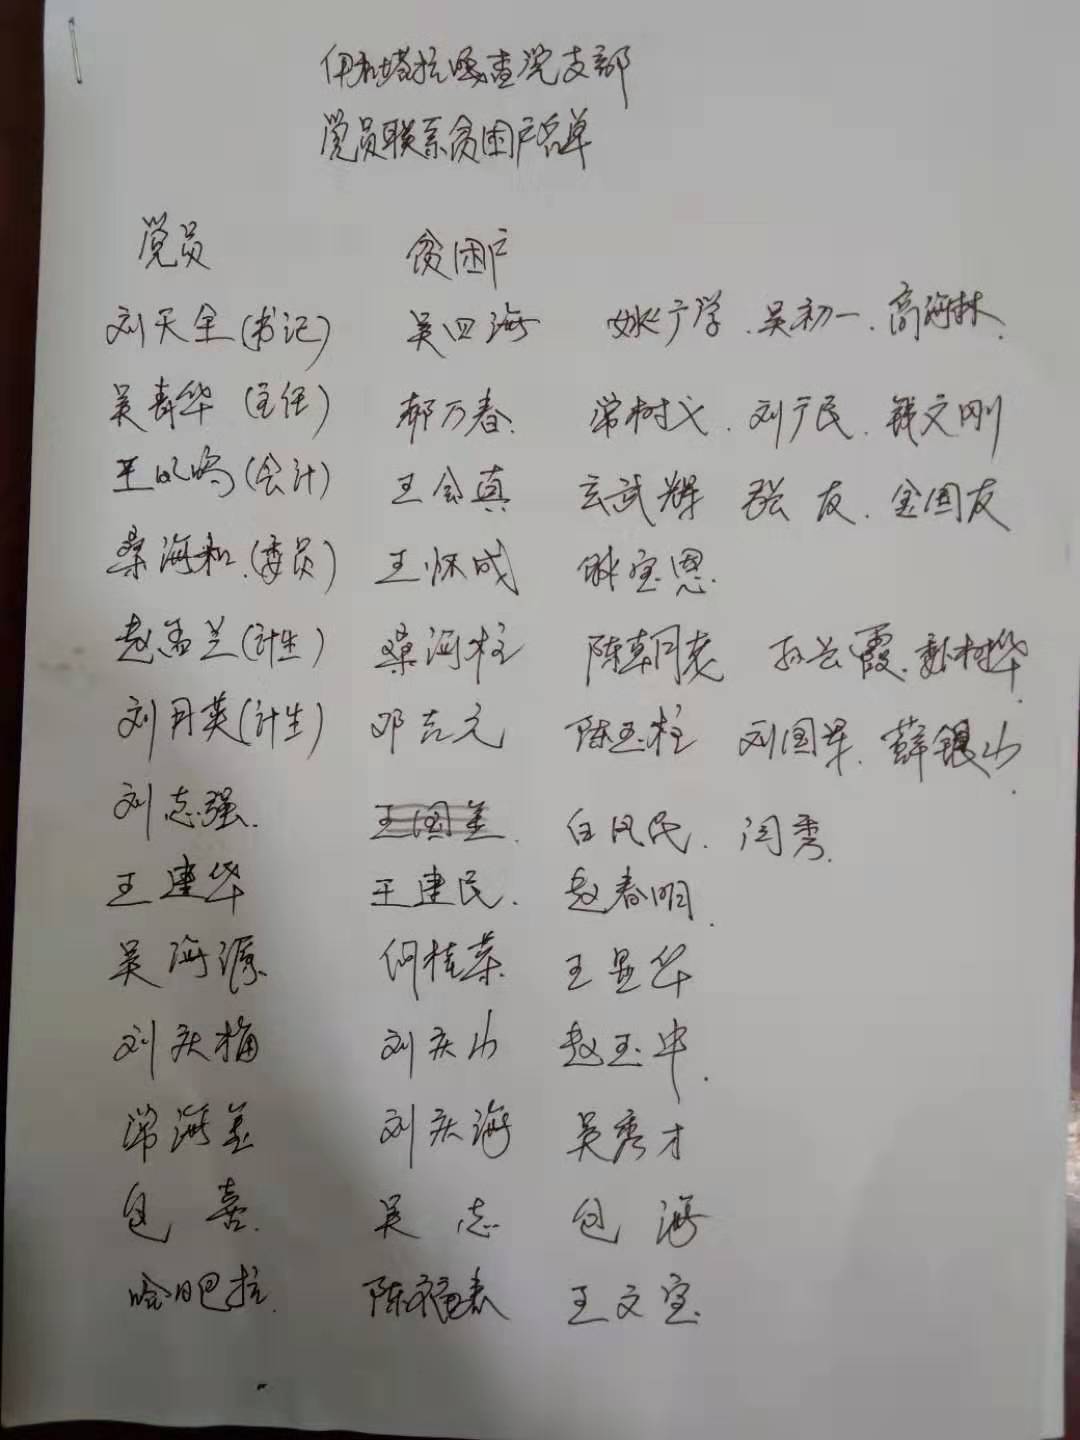 伊和塔拉嘎查党支部
党员联系贫困户名单
党员 贫困户
刘天全(书记) 吴四海 姚广学.吴初一.高海林.
吴青华(主任) 郝万春. 常树义.刘广民.钱文刚
王(会计) 王会真 玄武辉 张友.金国友
桑海和.(委员) 王怀成 宝恩.
赵孟兰(计生) 桑海柱 陈朝老 孙长霞.树桦
刘丹英(计生) 邓志元 陈玉柱 刘国军.薛银山.
刘志强. 王国美. 白凤民.闫秀.
王建华 王建民. 赵春明.
吴海源. 何桂荣. 王显华
刘庆梅 刘庆山 赵玉中.
常海美 刘庆海 吴秀才
包喜. 吴志 包海
哈日巴拉. 陈福春 王文宝.